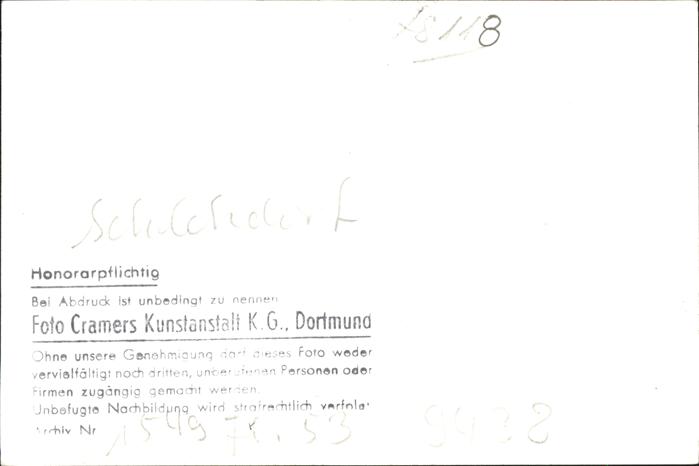 8118
Schlehdorf
Honorarpflichtig
Bei Abdruck ist unbedingt zu nennen
Foto Cramers Kunstanstalt K.G., Dortmund
Ohne unsere Genehmigung darf dieses Foto weder
vervielfältigt noch dritten, unberufenen Personen oder
Firmen zugängig gemacht werden.
Unbefugte Nachbildung wird strafrechtlich verfolgt
Archiv Nr